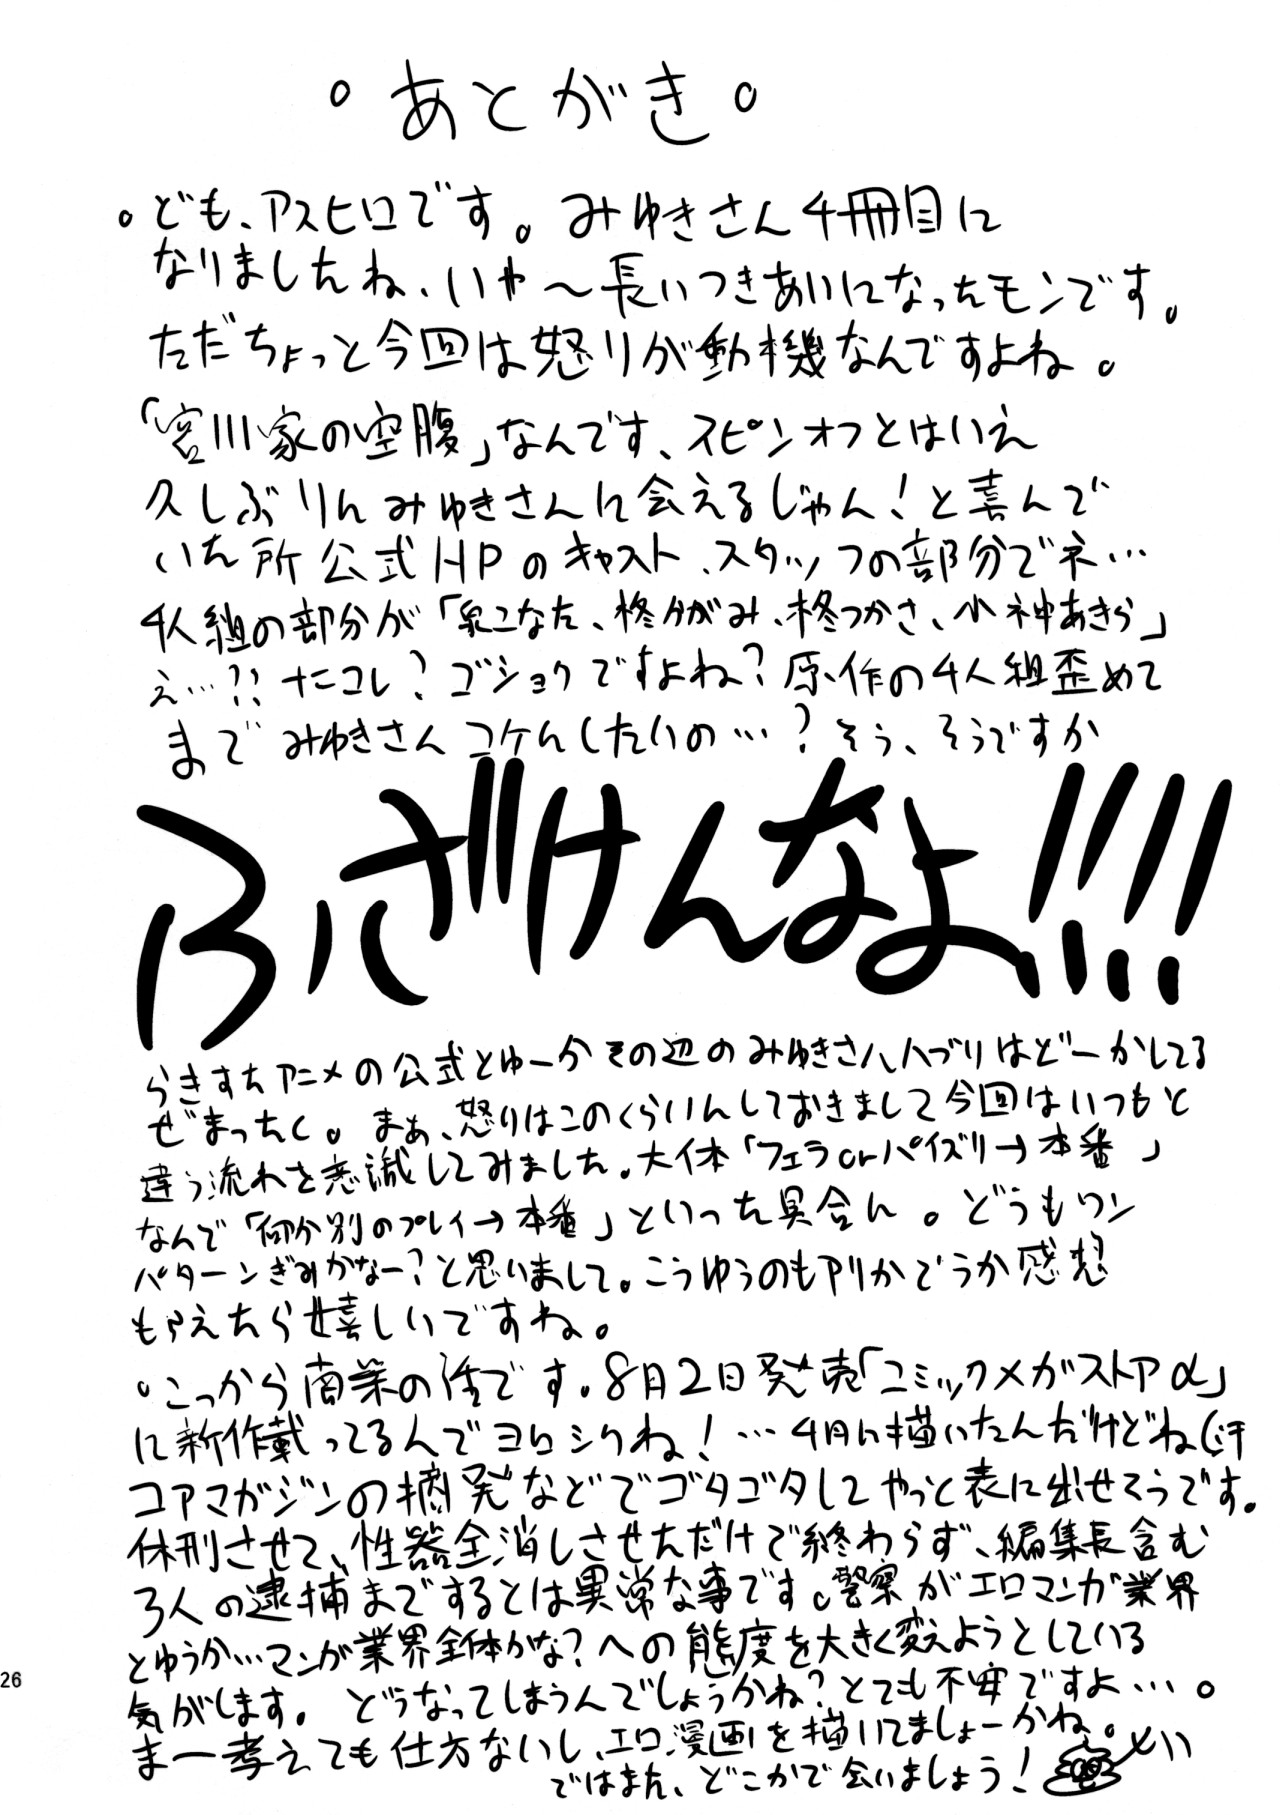 。あとがき。
。ども、アスヒロです。みゆきさん4冊目に
なりましたね、いや〜長いつきあいになったモンです。
ただちょっと今回は怒りが動機なんですよね。
「宮川家の空腹」なんです、スピンオフとはいえ
久しぶりにみゆきさんに会えるじゃん！と喜んで
いた所公式HPのキャスト、スタッフの部分でネ…
4人組の部分が「泉こなた、柊かがみ、柊つかさ、小神あきら」
え…?? ナニコレ？ゴショクですよね？原作の4人組歪めて
までみゆきさんコケにしたいの…？そう、そうですか
ふざけんなよ!!!!
らきすたアニメの公式とゆーかその辺のみゆきさんハブりはどーかしてる
ぜまったく。まぁ、怒りはこのくらいにしておきまして今回はいつもと
違う流れを意識してみました。大体「フェラorパイズリ→本番」
なんで「何か別のプレイ→本番」といった具合に。どうもワン
パターンぎみかなー？と思いまして。こうゆうのもアリかどうか感想
もらえたら嬉しいですね。
。こっから商業の話です。8月2日発売「コミックメガストアα」
に新作載ってるんでヨロシクね！…4月に描いたんだけどね(汗
コアマガジンの摘発などでゴタゴタしてやっと表に出せそうです。
休刊させて、性器全消しさせただけで終わらず、編集長含む
3人の逮捕までするとは異常な事です。警察がエロマンガ業界
とゆうか…マンガ業界全体かな？への態度を大きく変えようとしている
気がします。どうなってしまうんでしょうかね？とても不安ですよ…。
まー考えても仕方ないし、エロ漫画を描いてましょーかね。
ではまた、どこかで会いましょう！
26